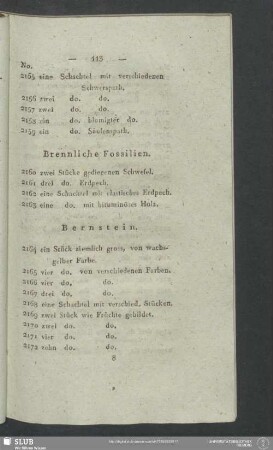 — 113 —
No.
2155 eine Schachtel mit verschiedenen
Schwerspath.
2156 zwei do. do.
2157 zwei do. do.
2158 ein do. blumigter do.
2159 ein do. Säulenspath.
Brennliche Fossilien.
2160 zwei Stücke gediegenen Schwefel.
2161 drei do. Erdpech.
2162 eine Schachtel mit elastisches Erdpech.
2163 eine do. mit bituminöses Holz.
Bernstein.
2164 ein Stück ziemlich gross, von wachs-
gelber Farbe.
2165 vier do. von verschiedenen Farben.
2166 vier do. do.
2167 drei do. do.
2168 eine Schachtel mit verschied. Stücken.
2169 zwei Stück wie Früchte gebildet.
2170 zwei do. do.
2171 vier do. do.
2172 zehn do. do.
8
SLUB
Wir führen Wissen.